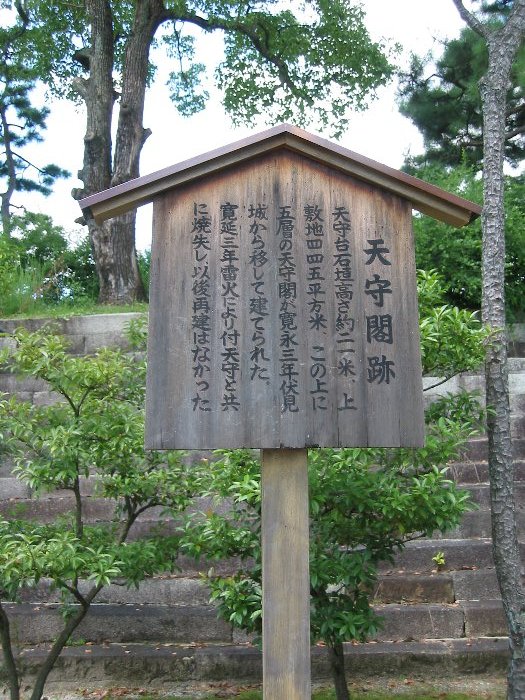 天守閣跡
天守台石垣高さ約二一米、上
敷地四四五平方米、この上に
五層の天守閣が寛永三年伏見
城から移して建てられた。
寛延三年雷火により付天守と共
に焼失し以後再建はなかった